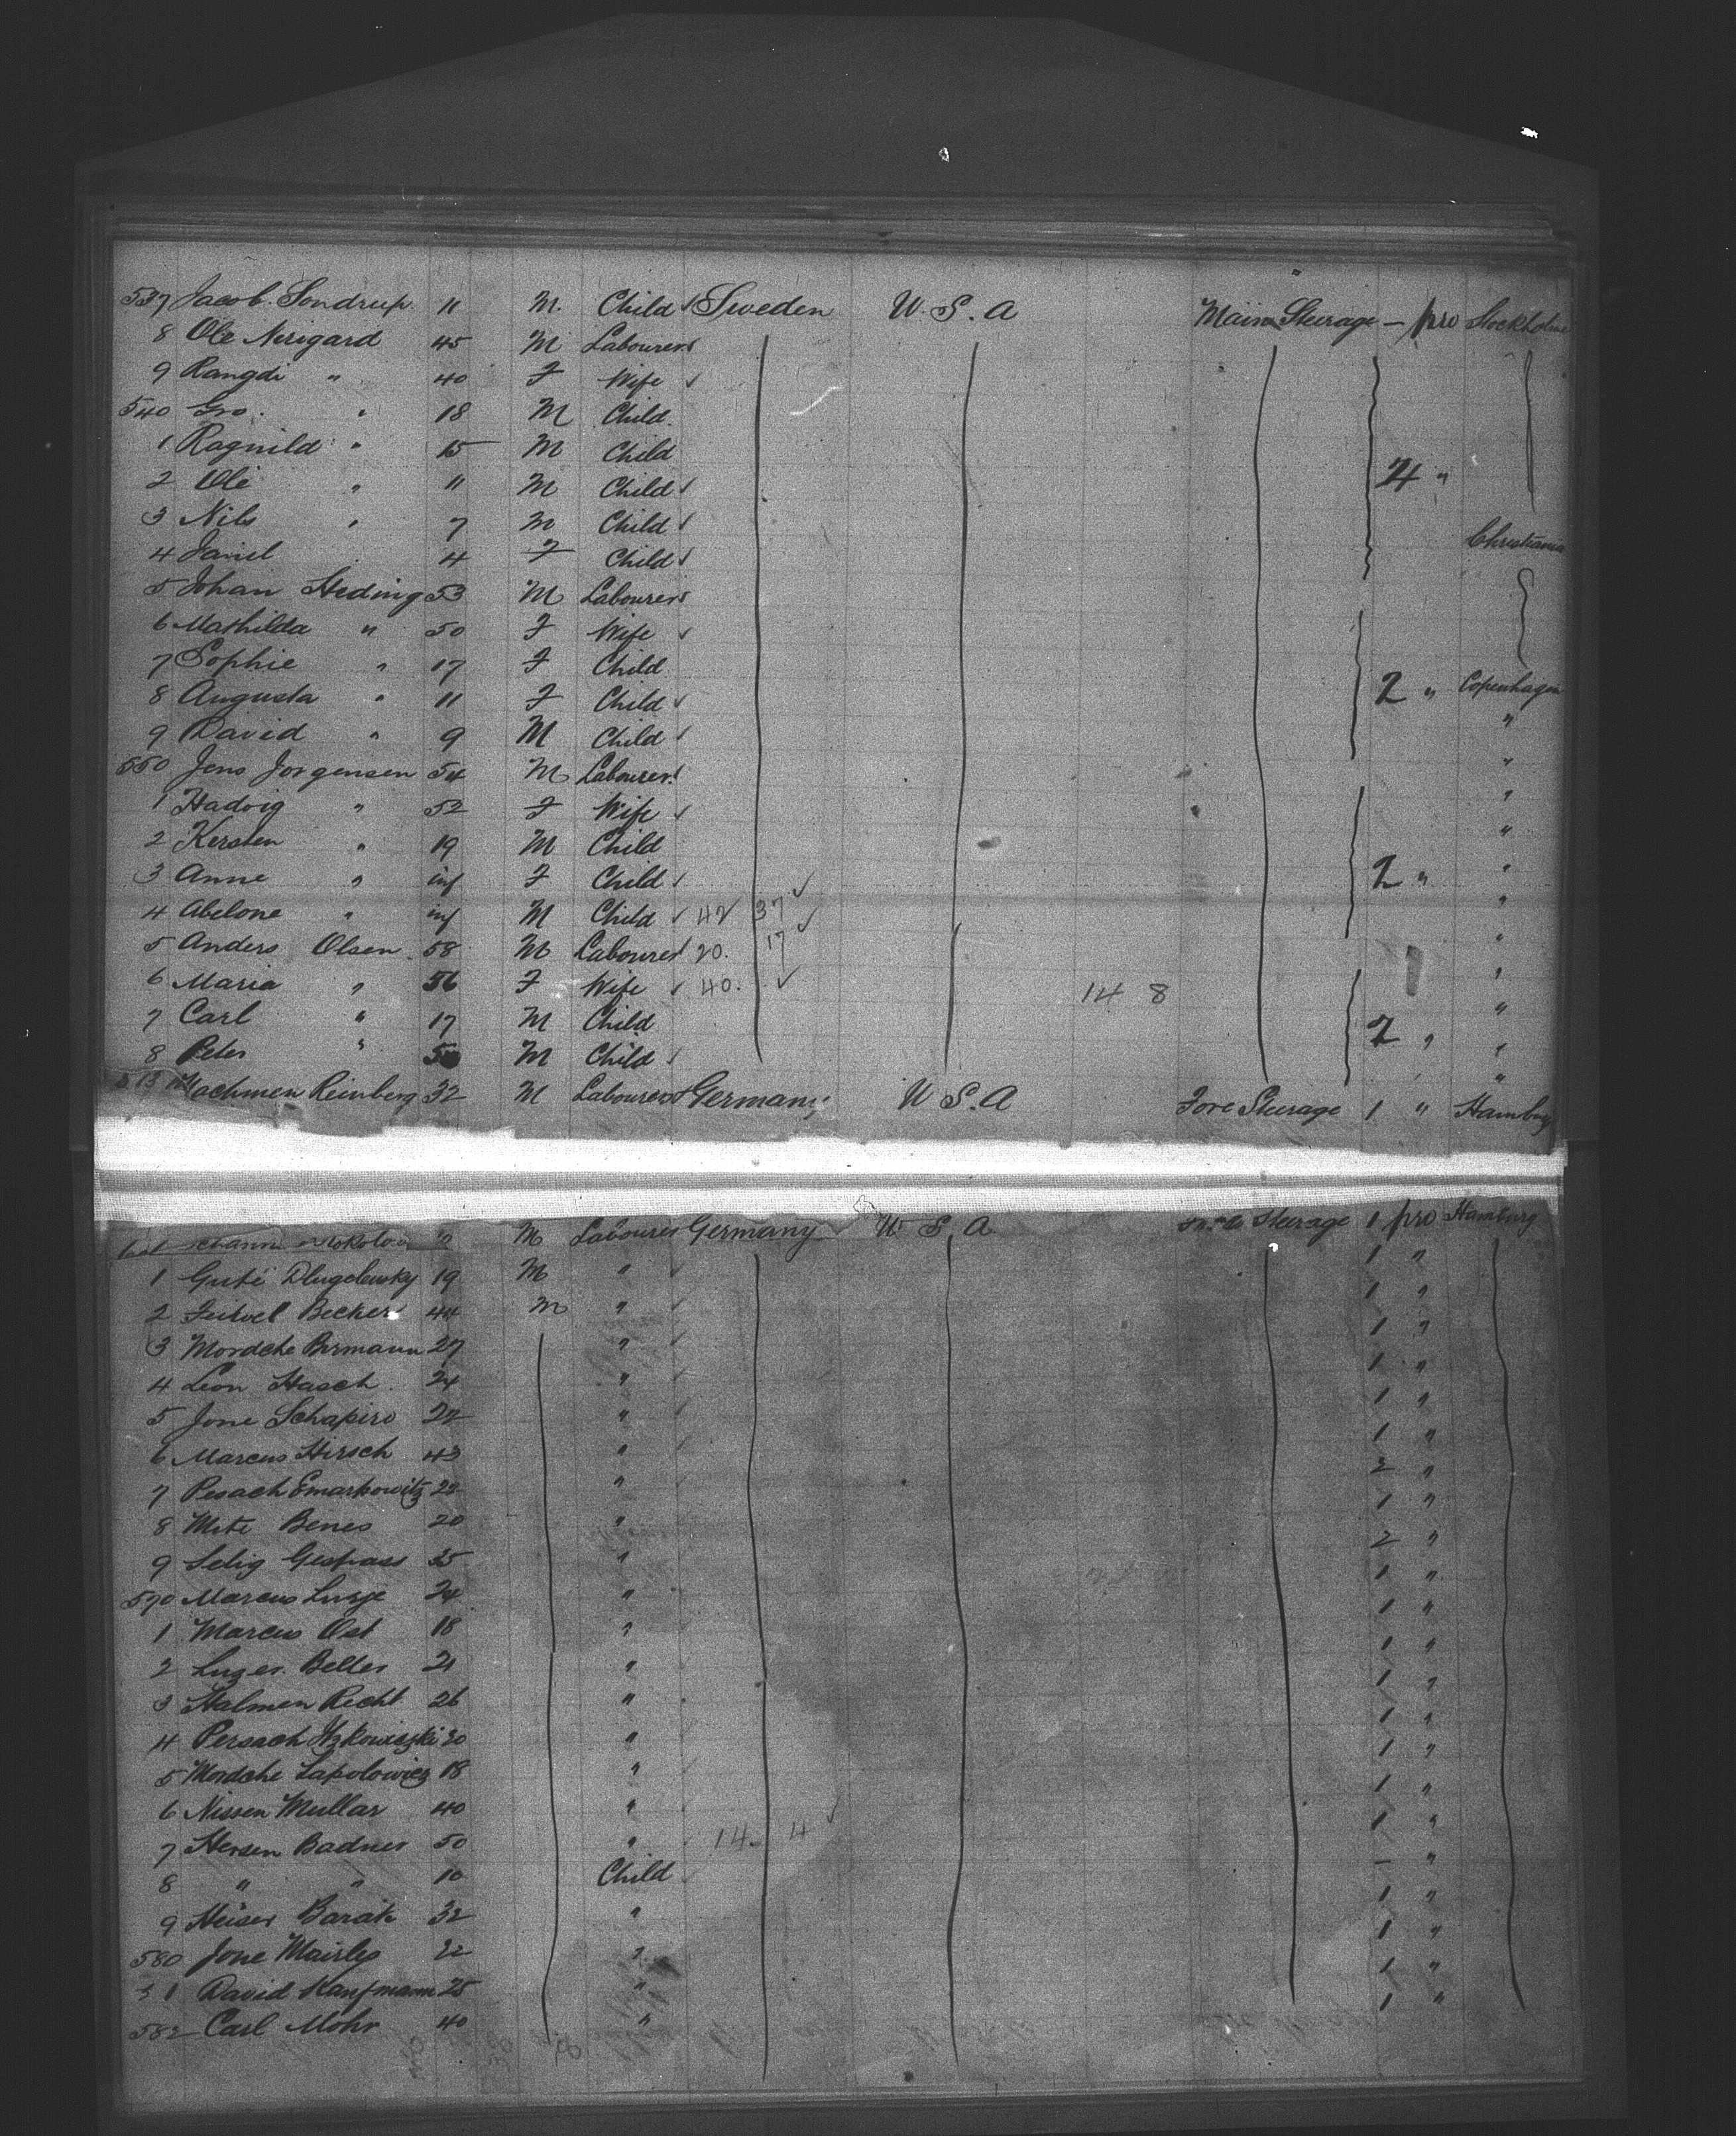 537 Jacob. Sondrup. 11 M. Child Sweden U. S. A Main Steerage - pro Stockholm
8 Ole Nerigard 45 M Labourer
9 Rangdi " 40 F Wife
540 Gro. " 18 M Child.
1 Ragnild " 15 M Child
2 Ole " 11 M Child 4 "
3 Nils " 7 M Child
4 4 F Child Christiania
5 Johan Heding 53 M Labourer
6 Mathilda " 50 F Wife
7 Sophie " 17 F Child
8 Augusta " 11 F Child 2 " Copenhagen
9 David " 9 M Child "
550 Jens Jorgensen 54 M Labourer "
1 Hadvig " 52 F Wife "
2 Kersten " 19 M Child "
3 Anne " inf F Child 2 " "
4 Abelone " inf M Child 42 37 "
5 Anders Olsen. 58 M Labourer 20. 17 "
6 Maria " 56 F Wife 40. 14 8 "
7 Carl " 17 M Child 2 " "
8 Peter " M Child "
Reinberg 32 M Labourer Germany U S. A Fore Steerage 1 " Hamburg
M Labourer Germany U S A Steerage 1 pro Hamburg
1 Gute Dlugolewsky 19 M " 1 "
2 Feitvel Becker 44 M " 1 "
3 Mordche Bermann 27 " 1 "
4 Leon Hasch. 24 " 1 "
5 Jone Schapiro 22 " 1 "
6 Marcus Hirsch 43 " 1 "
7 Pesach Emarkowitz 22 " 2 "
8 Mote Benes 20 " 1 "
9 Selig Gespass 35 " 2 "
570 Marcus 24 " 1 "
1 Marcus Ost 18 " 1 "
2 Luzer. Belter 21 " 1 "
3 Halmen Recht 26 " 1 "
4 Persach Itzkowiczki 20 " 1 "
5 Mordche Lapolowicz 18 " 1 "
6 Nissen Mullar 40 " 1 "
7 Hersen Badner 50 " 14 4 1 "
8 " " 10 Child - "
9 Heiser Barak 32 " 1 "
580 Jone 22 " 1 "
1 David Kaufmann 25 " 1 "
582 Carl Mohr 40 " 1 "